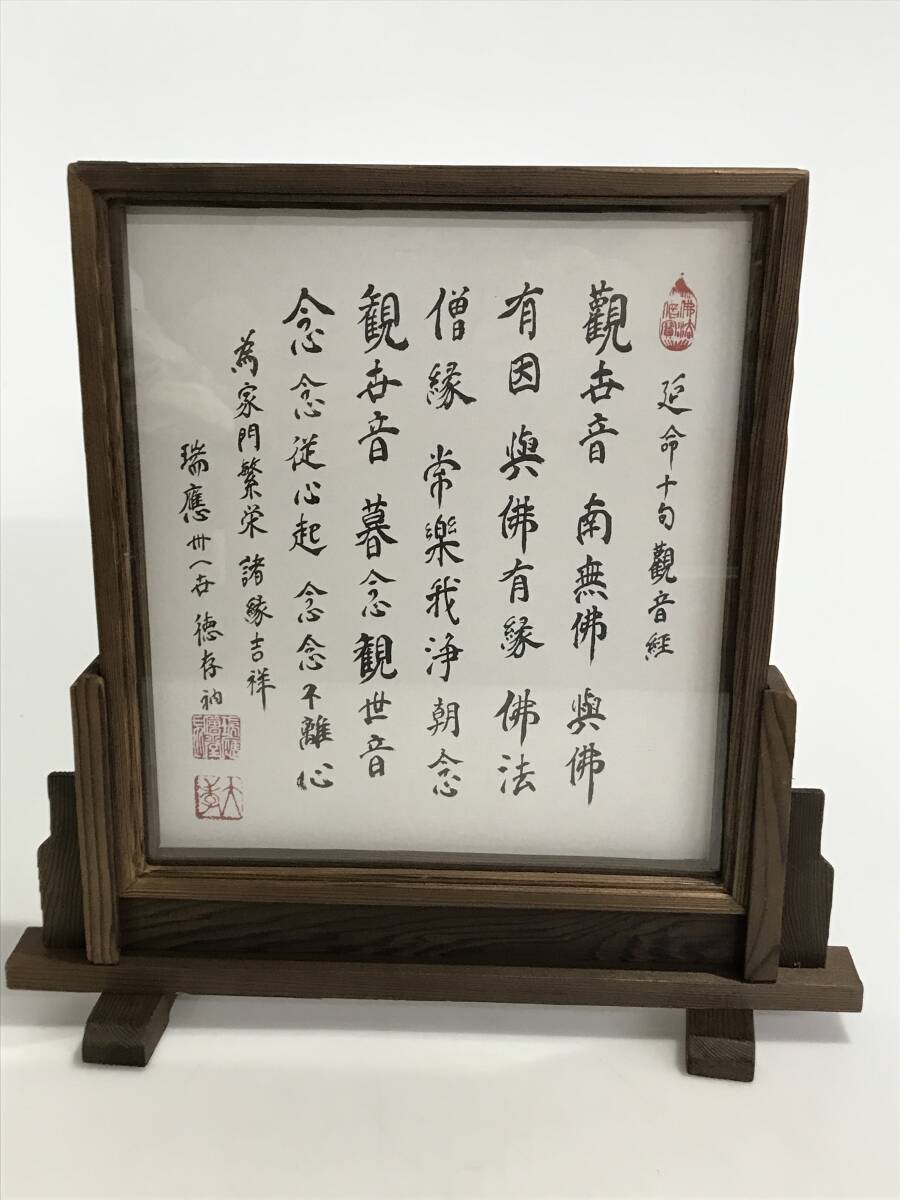 佛法僧寶
延命十句觀音經
觀世音 南無佛 與佛
有因 與佛有縁 佛法
僧縁 常樂我淨 朝念
観世音 暮念観世音
念念從心起 念念不離心
為家門繁栄 諸縁吉祥
瑞應丗一世 徳存衲